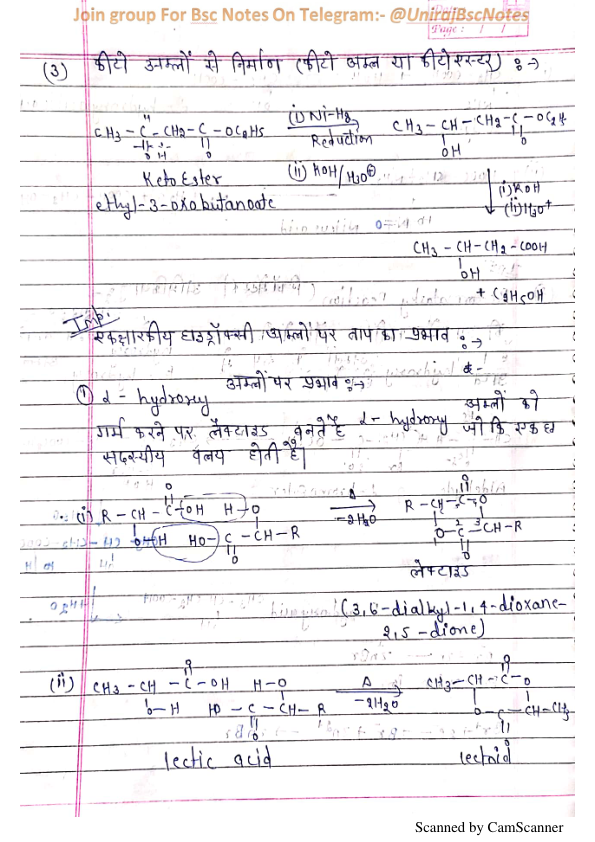 Join group For Bsc Notes On Telegram:- @UnirajBscNotes
Page : / /
(3) कीटो अम्लों से निर्माण (कीटो अम्ल या कीटोएस्टर) :→
CH3 – C – CH2 – C – OC2H5 (i) Ni–H2 Reduction CH3 – CH – CH2 – C – OC2H5
O OH O
Keto Ester (ii) KOH/H3O⊕
ethyl-3-oxobutanoate (i) KOH
(ii) H3O+
CH3 – CH – CH2 – COOH
OH
+ C2H5OH
Imp.
एकक्षारकीय हाइड्रॉक्सी अम्लों पर ताप का प्रभाव :→
① α – hydroxy अम्लों पर प्रभाव :→
α – hydroxy अम्लों को
गर्म करने पर लैक्टाइड बनते है जो कि एक छ
सदस्यीय वलय होती है।
O O
(i) R – CH – C – OH H – O Δ R – CH – C – O
O–H HO – C – CH – R –2H2O O – C – CH – R
O O
लेक्टाइड
(3,6-dialkyl-1,4-dioxane-
2,5-dione)
O O
(ii) CH3 – CH – C – OH H – O Δ CH3 – CH – C – O
O – H HO – C – CH – R –2H2O O – C – CH – CH3
O O
lectic acid lectnid
Scanned by CamScanner